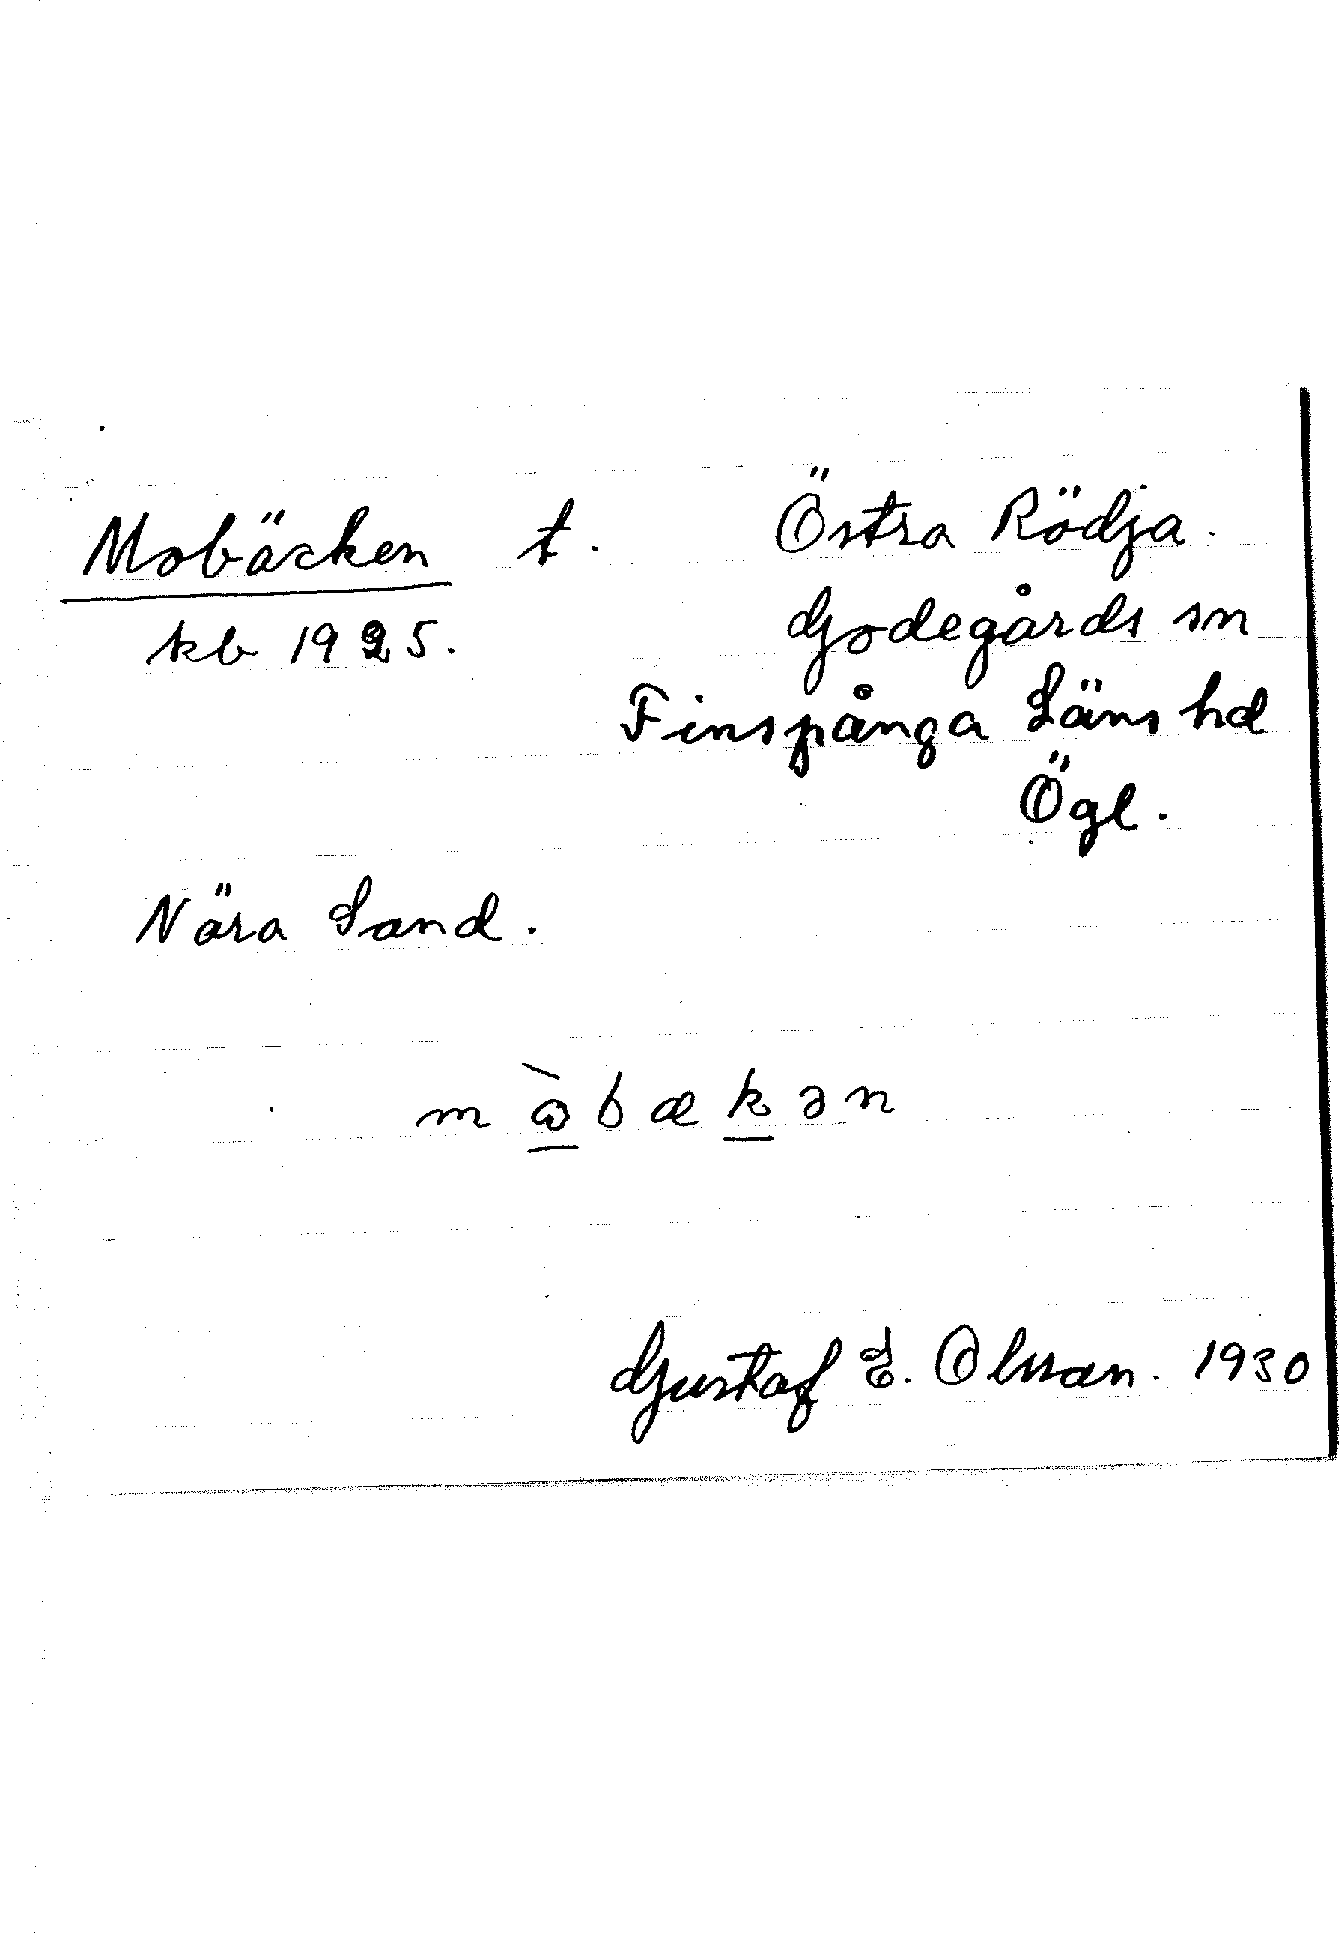 Mobäcken t. Östra Rödja.
kb 1925. Godegårds sn
Finspånga Läns hd
Ögl.
Nära Sand.
mɷ̀bækən
Gustaf E. Olsson. 1930